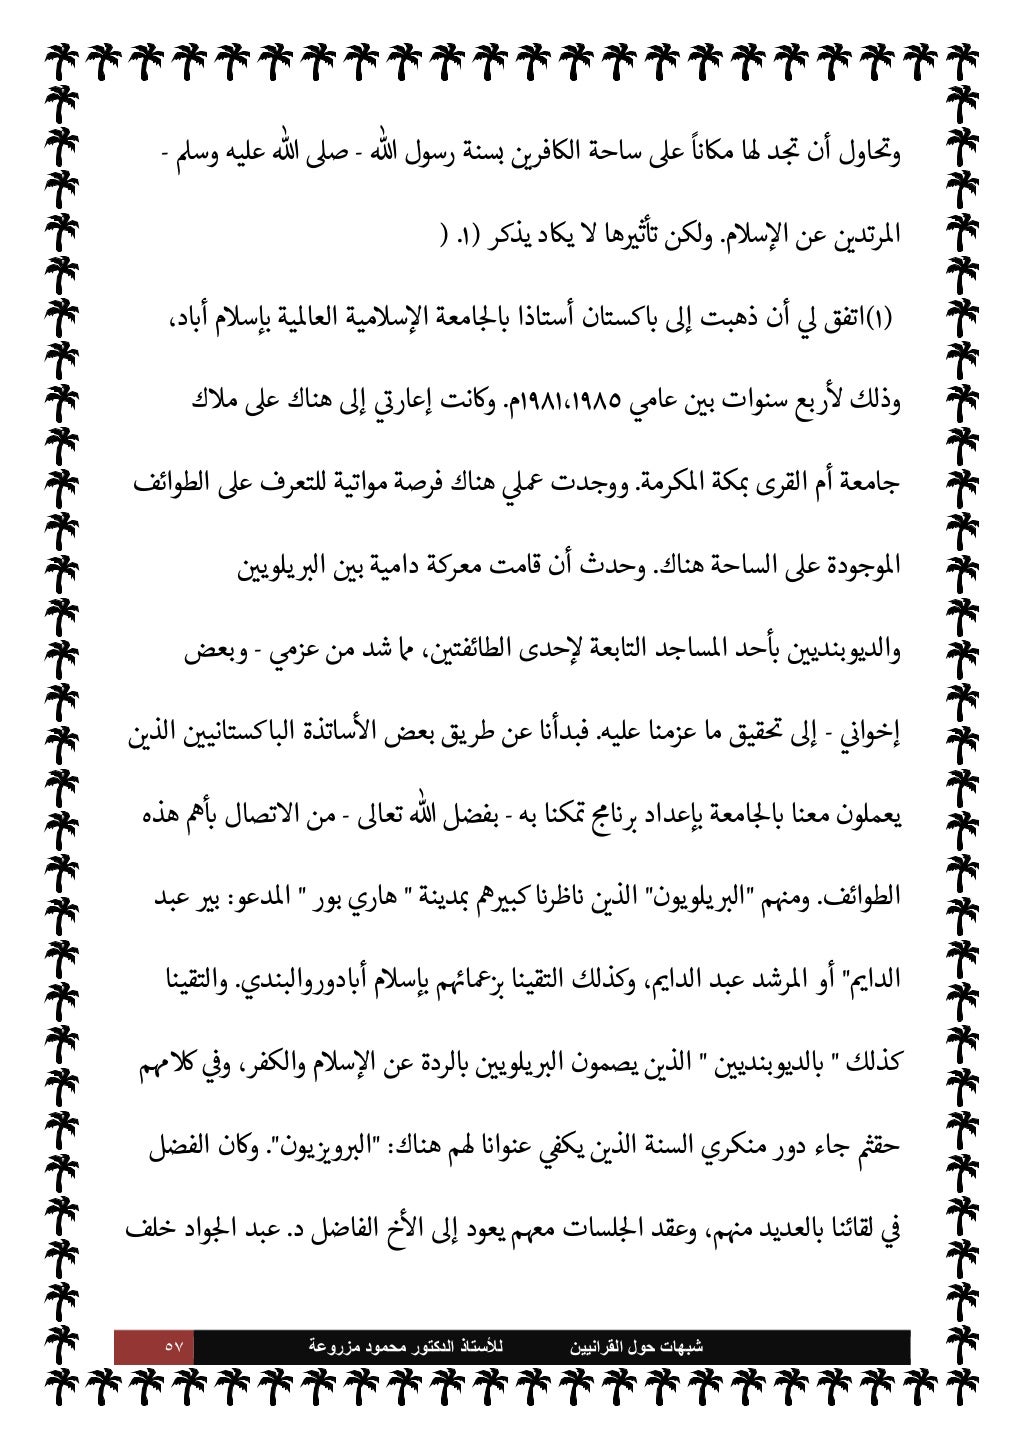 وتحاول أن تجد لها مكاناً على ساحة الكافرين بسنة رسول الله - صلى الله عليه وسلم -
المرتدين عن الإسلام. ولكن تأثيرها لا يكاد يذكر (١. (
(١)اتفق لي أن ذهبت إلى باكستان أستاذا بالجامعة الإسلامية العالمية بإسلام أباد،
وذلك لأربع سنوات بين عامي ١٩٨١،١٩٨٥م. وكانت إعارتي إلى هناك على ملاك
جامعة أم القرى بمكة المكرمة. ووجدت عملي هناك فرصة مواتية للتعرف على الطوائف
الموجودة على الساحة هناك. وحدث أن قامت معركة دامية بين البريلويين
والديوبنديين بأحد المساجد التابعة لإحدى الطائفتين، مما شد من عزمي - وبعض
إخواني - إلى تحقيق ما عزمنا عليه. فبدأنا عن طريق بعض الأساتذة الباكستانيين الذين
يعملون معنا بالجامعة بإعداد برنامج تمكنا به - بفضل الله تعالى - من الاتصال بأهم هذه
الطوائف. ومنهم "البريلويون" الذين ناظرنا كبيرهم بمدينة " هاري بور " المدعو: بير عبد
الدايم" أو المرشد عبد الدايم، وكذلك التقينا بزعمائهم بإسلام أبادوروالبندي. والتقينا
كذلك " بالديوبنديين " الذين يصمون البريلويين بالردة عن الإسلام والكفر، وفي كلامهم
حقثم جاء دور منكري السنة الذين يكفي عنوانا لهم هناك: "البرويزيون". وكان الفضل
في لقائنا بالعديد منهم، وعقد الجلسات معهم يعود إلى الأخ الفاضل د. عبد الجواد خلف
شبهات حول القرانيين للأستاذ الدكتور محمود مزروعة ٥٧